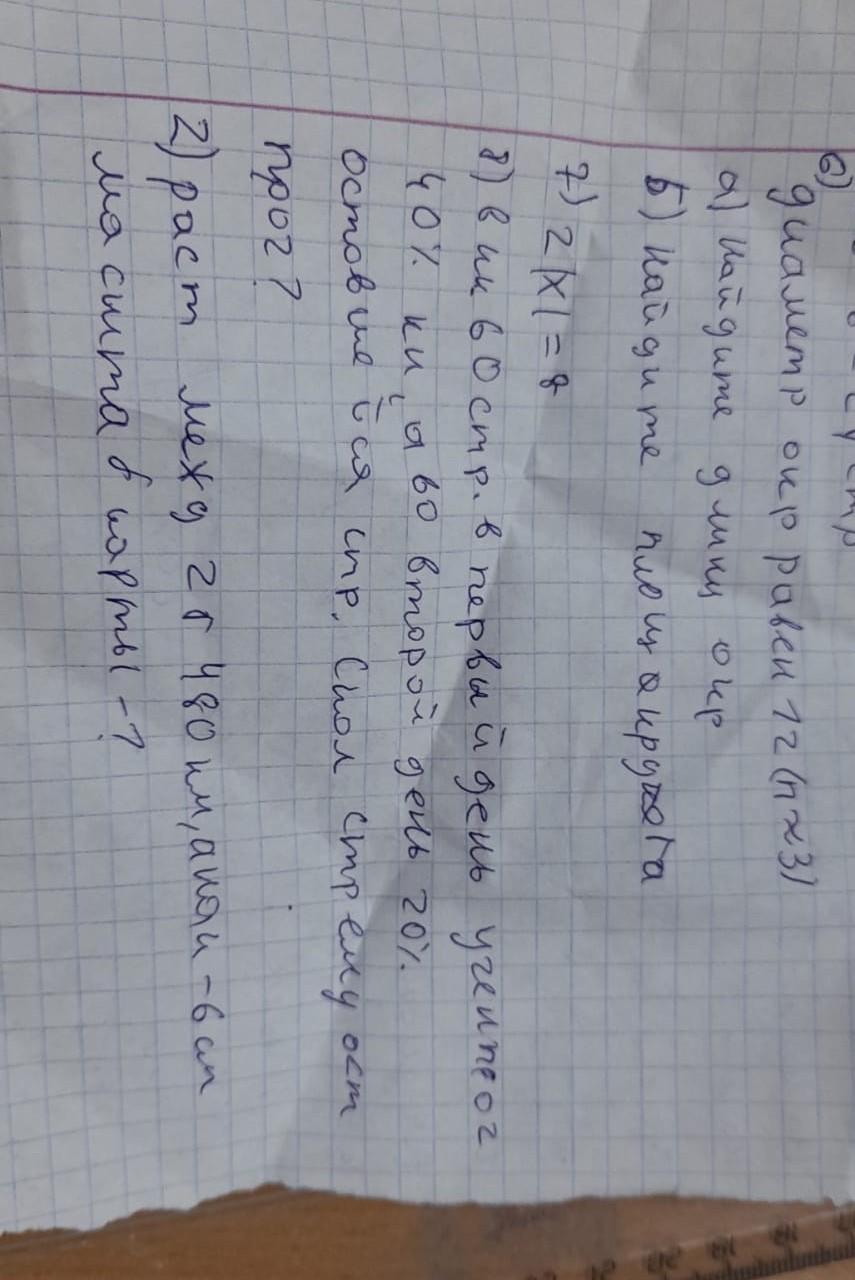 6)
диаметр окр равен 12 (п≈3)
а) найдите длину окр
б) найдите площ круга
7) 2|x| = 8
8) в кн 60 стр. в первый день уч
40% кн, а во второй день 20%.
оставшейся стр. Скол стр ему ост
проч?
2) раст межд 2 г 480 км, а на к - 6 см
масштаб карты - ?